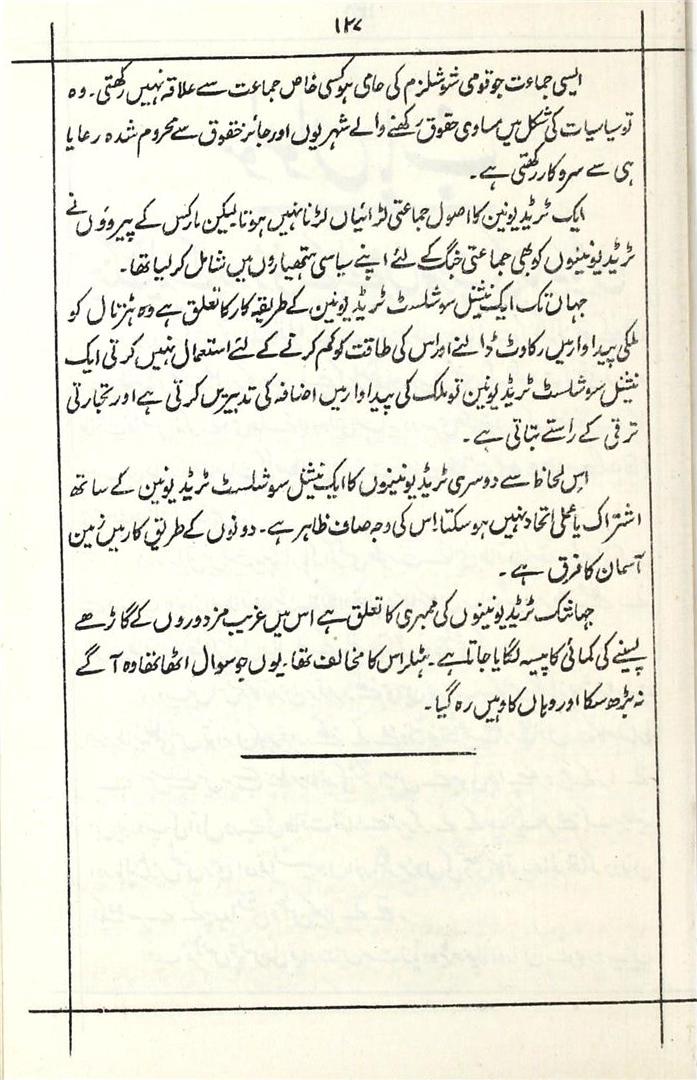 ۱۲۷
ایسی جماعت جو قومی شوشلزم کی حامی ہو کسی خاص جماعت سے علاقہ نہیں رکھتی۔ وہ
تو سیاسیات کی شکل میں مساوی حقوق رکھنے والے شہریوں اور جائز حقوق سے محروم شدہ رعایا
ہی سے سروکار رکھتی ہے۔
ایک ٹریڈ یونین کا اصول جماعتی لڑائیاں لڑنا نہیں ہوتا لیکن مارکس کے پیروؤں نے
ٹریڈ یونینوں کو بھی جماعتی جنگ کے لئے اپنے سیاسی ہتھیاروں میں شامل کر لیا تھا۔
جہاں تک ایک نیشنل سوشلسٹ ٹریڈ یونین کے طریقہ کار کا تعلق ہے وہ ہڑتال کو
ملکی پیداوار میں رکاوٹ ڈالنے اور اس کی طاقت کو کم کرنے کے لئے استعمال نہیں کرتی ایک
نیشنل سوشلسٹ ٹریڈ یونین تو ملک کی پیداوار میں اضافہ کی تدبیریں کرتی ہے اور تجارتی
ترقی کے راستے بتاتی ہے۔
اس لحاظ سے دوسری ٹریڈ یونینوں کا ایک نیشنل سوشلسٹ ٹریڈ یونین کے ساتھ
اشتراک یا عملی اتحاد نہیں ہو سکتا۔ اس کی وجہ صاف ظاہر ہے۔ دونوں کے طریق کار میں زمین
آسمان کا فرق ہے۔
جہانتک ٹریڈ یونینوں کی ممبری کا تعلق ہے اس میں غریب مزدوروں کے گاڑھے
پسینے کی کمائی کا پیسہ لگایا جاتا ہے۔ ہٹلر اس کا مخالف تھا۔ یوں جو سوال اٹھا تھا وہ آگے
نہ بڑھ سکا اور وہاں کا وہیں رہ گیا۔